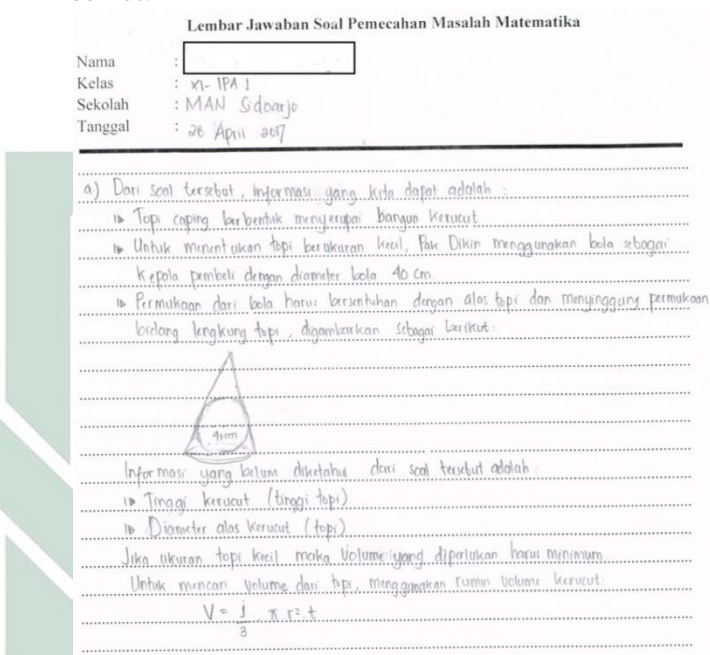 Lembar Jawaban Soal Pemecahan Masalah Matematika
Nama :
Kelas : XI-IPA 1
Sekolah : MAN Sidoarjo
Tanggal : 28 April 2017
a) Dari soal tersebut, informasi yang kita dapat adalah :
Topi caping berbentuk menyerupai bangun kerucut
Untuk menentukan topi berukuran kecil, Pak Dikin menggunakan bola sebagai
kepala pembeli dengan diameter bola 40 cm
Permukaan dari bola harus bersentuhan dengan alas topi dan menyinggung permukaan
bidang lengkung topi, digambarkan sebagai berikut:
40cm
Informasi yang belum diketahui dari soal tersebut adalah :
Tinggi kerucut (tinggi topi)
Diameter alas kerucut (topi)
Jika ukuran topi kecil maka Volume yang diperlukan harus minimum
Untuk mencari volume dari topi, menggunakan rumus volume kerucut:
V = 1/3 . π r². t